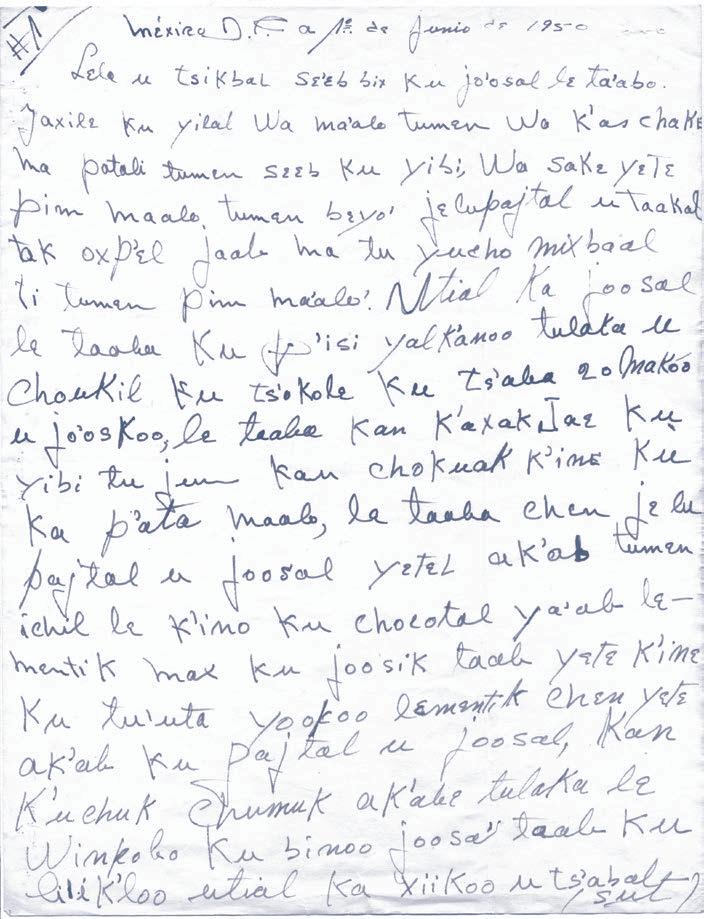 #1
México D.F. a 1º de Junio de 1950
Lela u tsikbal seeb bix ku jo'osal le ta'abo.
Yaxile ku yilal wa ma'alo tumen wa k'as chake
ma patali tumen seeb ku yibi, wa sake yete
pim maalo, tumen beyo' jelupajtal u taakal
tak oxp'el jaab ma tu yucho mixbaal
ti tumen pim ma'alo'. Utial ka joosal
le taaba ku p'isi yalk'anoo tulaka u
choukil ku ts'okole ku ts'aba 20 makóo
u jo'oskoo, le taaba kan k'axak Jae ku
yibi tu jun kan chokuak k'ine ku
ka p'ata maalo, la taaba chen je lu
pajtal u joosal yetel ak'ab tumen
ichil le k'ino ku chocotal ya'ab le-
mentik max ku joosik taab yete k'ine
ku tu'uta yookoo lementik chen yete
ak'ab ku pajtal u joosal, kan
k'uchuk chumuk ak'abe tulaka le
winkobo ku binoo joosa' taab ku
lilik'loo utial ka xiikoo u ts'abalt
(sut)